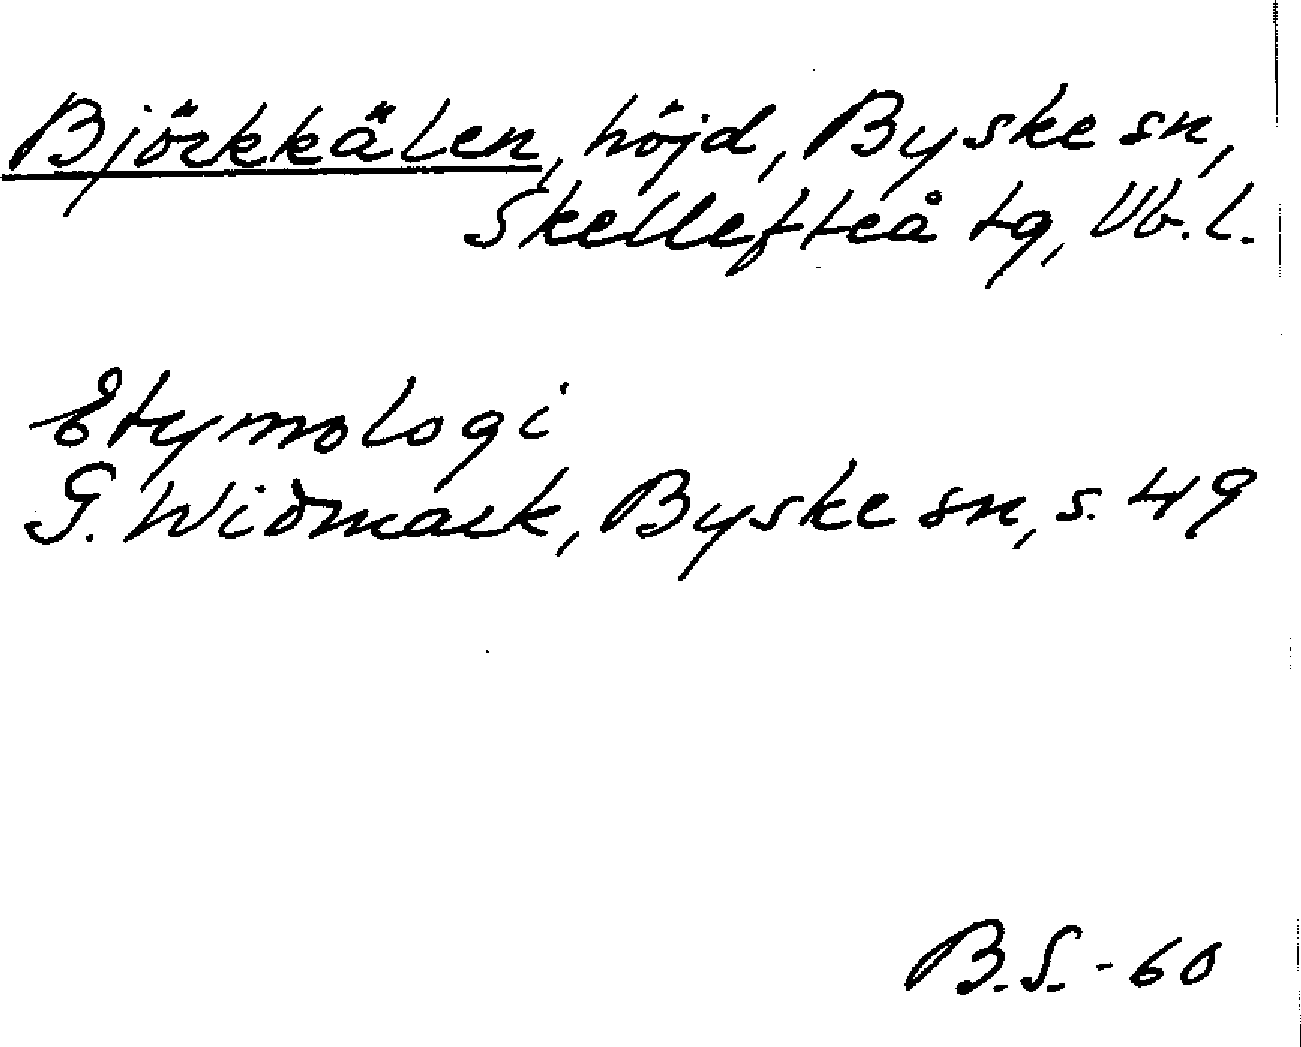 Björkkälen, höjd, Byske sn,
Skellefteå tg, Vb. l.
Etymologi
G. Widmark, Byske sn, s. 49
B.S.-60